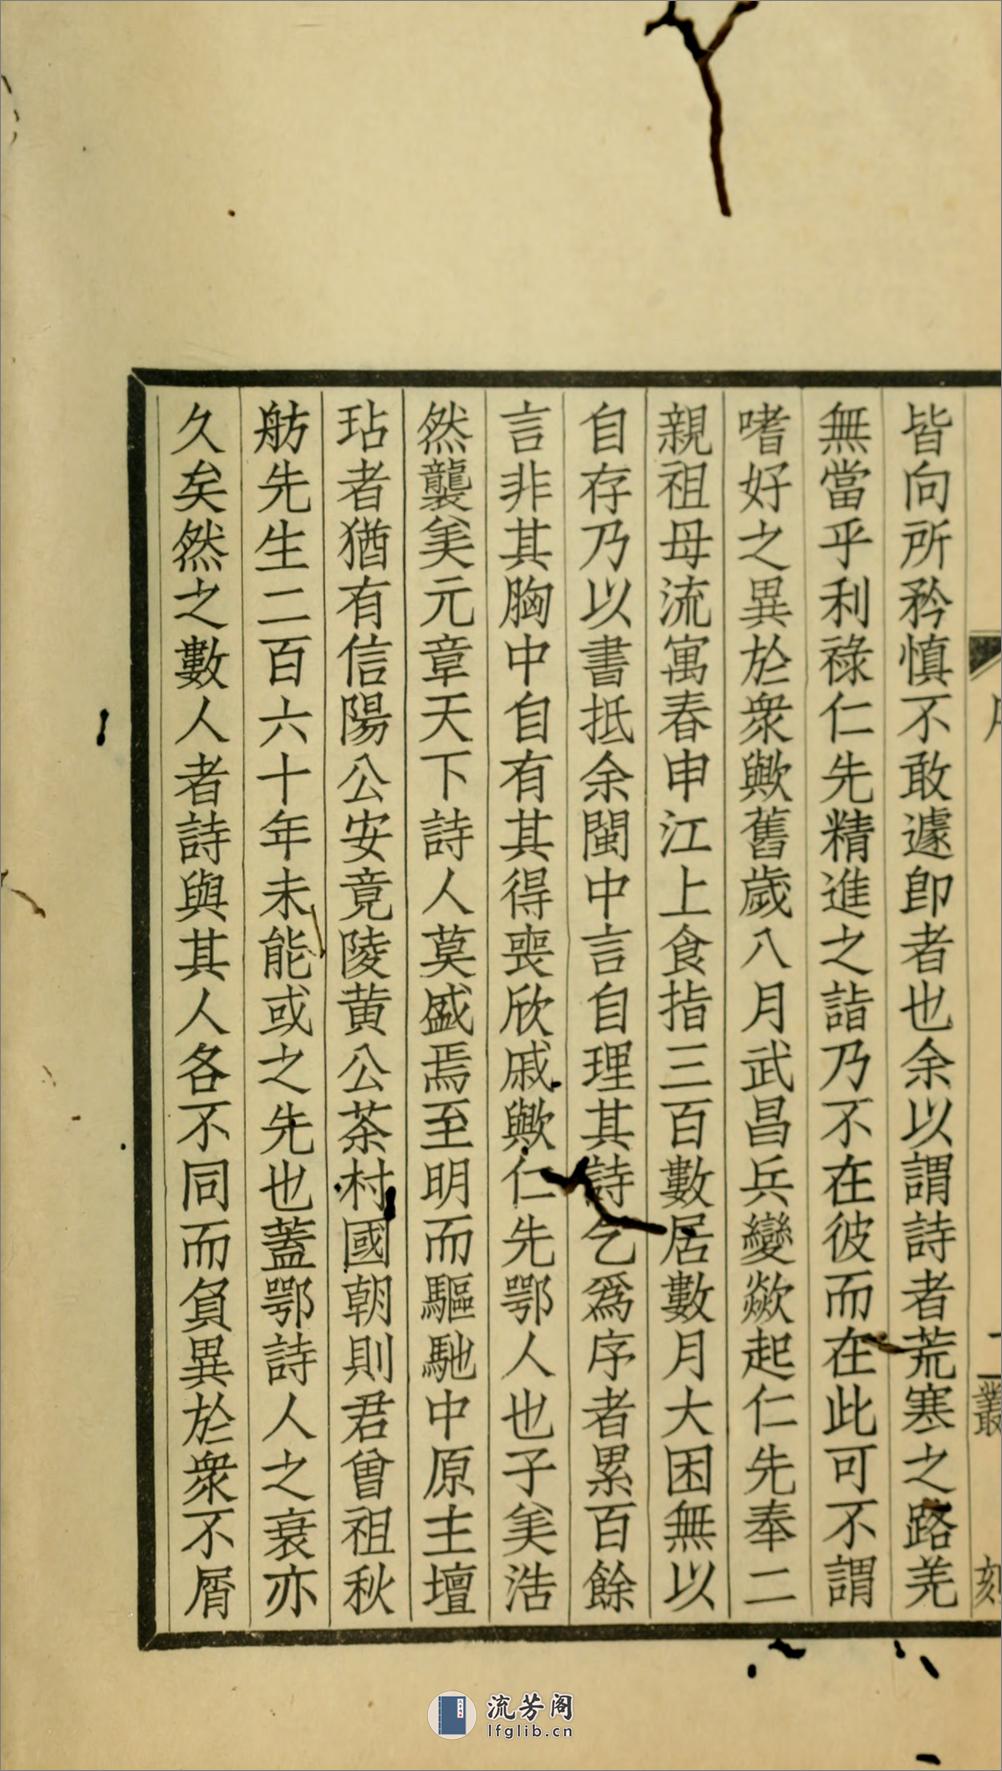 皆向所矜慎不敢遽即者也余以謂詩者荒寒之路羌
無當乎利祿仁先精進之詣乃不在彼而在此可不謂
嗜好之異於衆歟舊歲八月武昌兵變歘起仁先奉二
親祖母流寓春申江上食指三百數居數月大困無以
自存乃以書抵余閩中言自理其詩乞爲序者累百餘
言非其胸中自有其得喪欣戚歟仁先鄂人也子美浩
然襲美元章天下詩人莫盛焉至明而驅馳中原主壇
玷者猶有信陽公安竟陵黄公茶村國朝則君曾祖秋
舫先生二百六十年未能或之先也蓋鄂詩人之衰亦
久矣然之數人者詩與其人各不同而負異於衆不屑
叢
刻
流芳阁
lfglib.cn